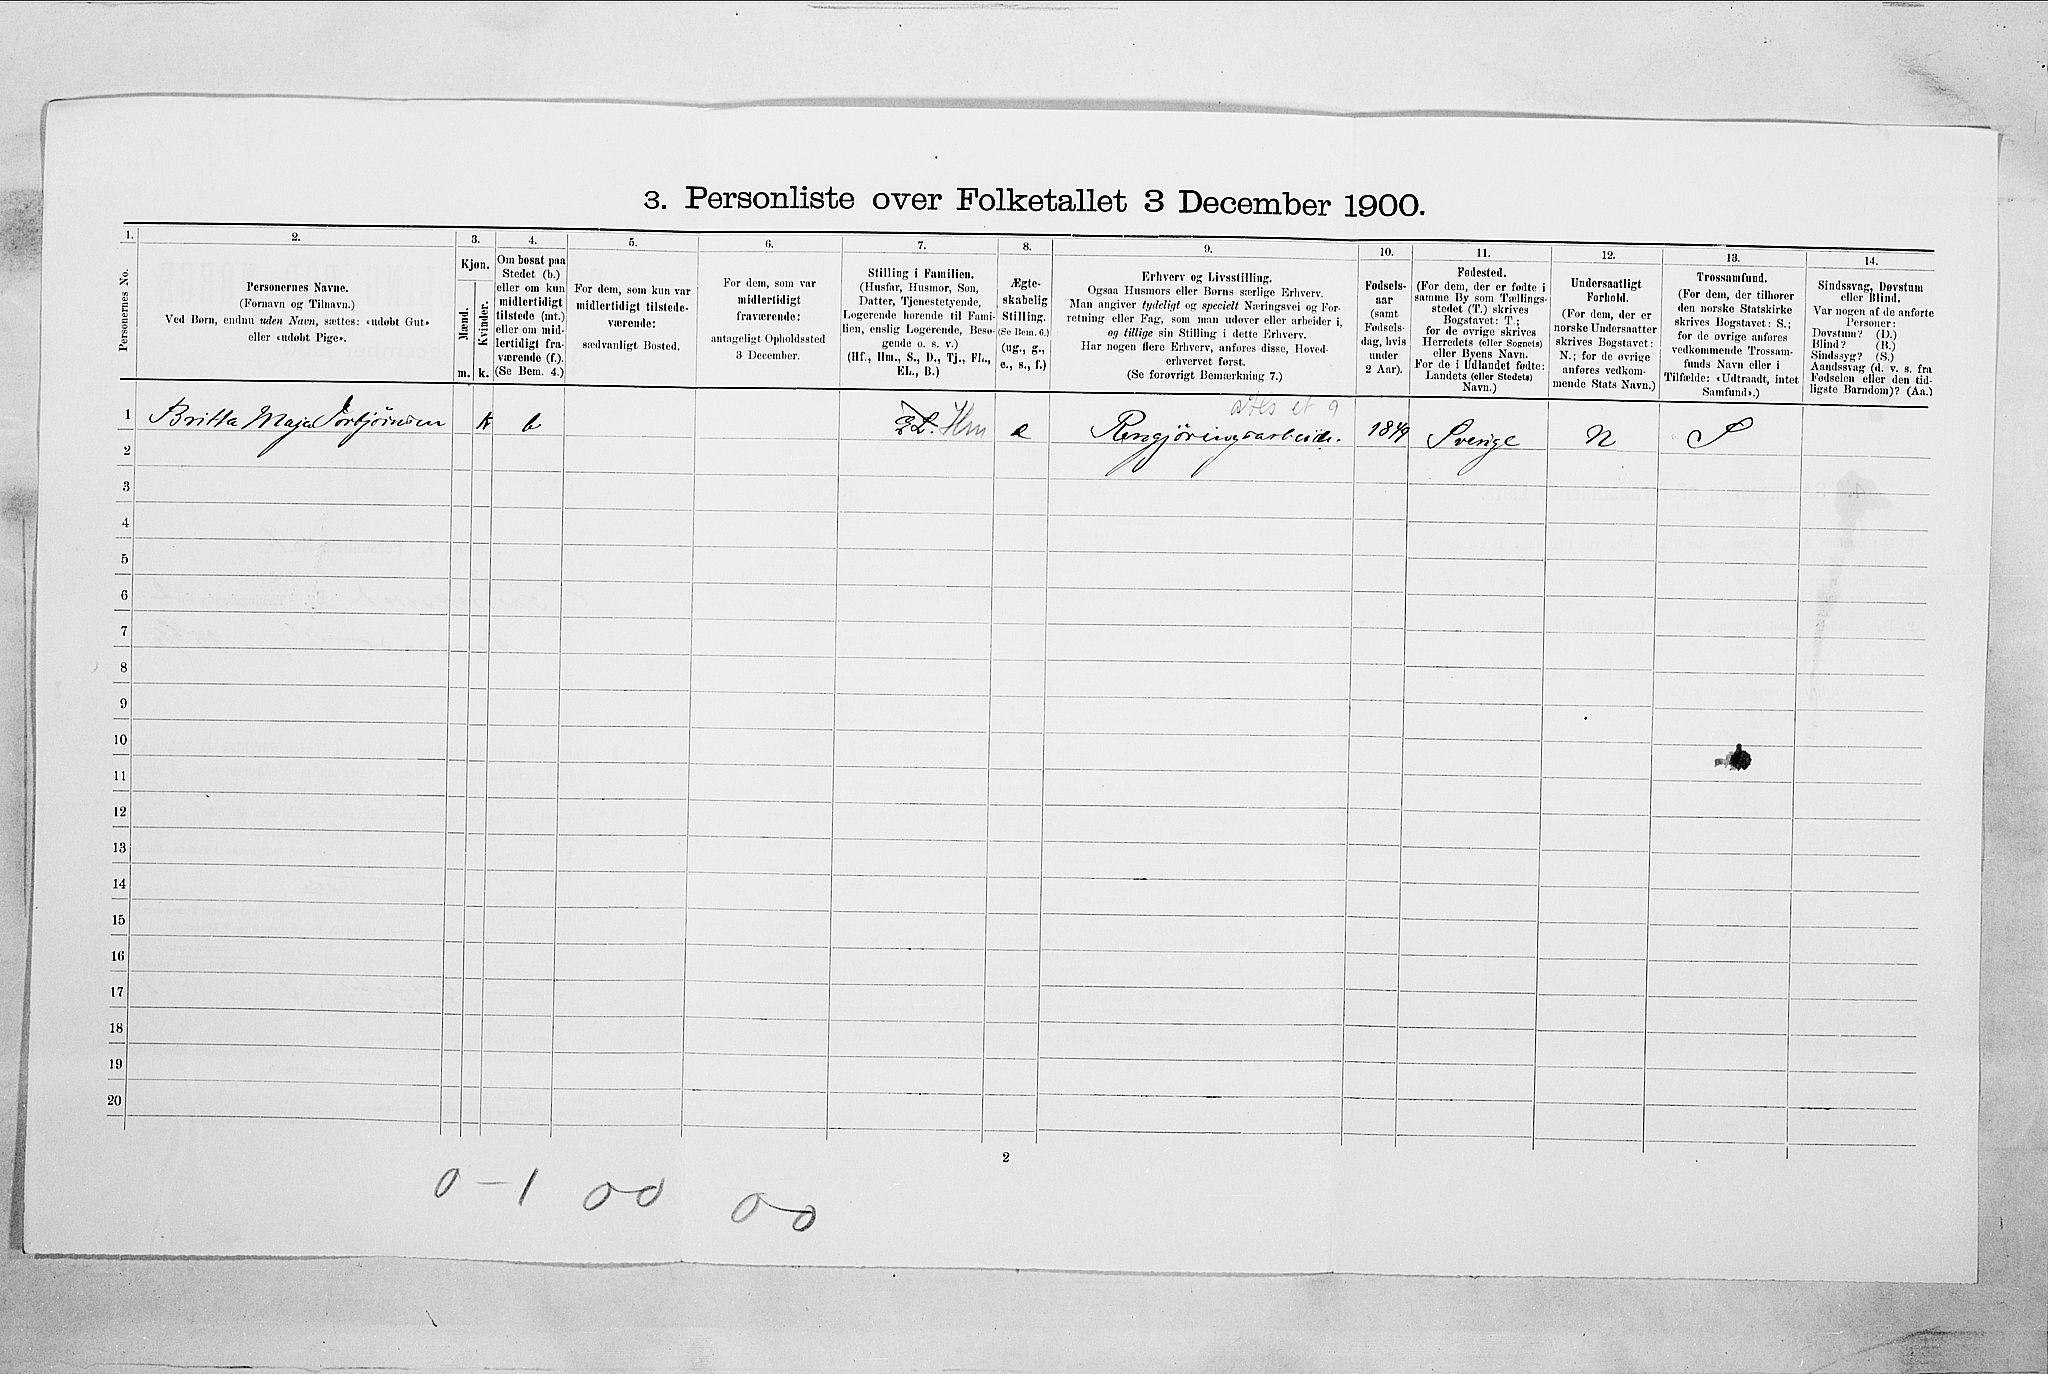 3. Personliste over Folketallet 3 December 1900.
1.
2.
3.
4.
5.
6.
7.
8.
9.
10.
11.
12.
13.
14.
Personernes No.
Personernes Navne.
(Fornavn og Tilnavn.)
Ved Børn, endnu uden Navn, sættes: «udøbt Gut»
eller «udøbt Pige».
Kjøn.
Mænd.
Kvinder.
m.
k.
Om bosat paa
Stedet (b.)
eller om kun
midlertidigt
tilstede (mt.)
eller om mid-
lertidigt fra-
værende (f.).
(Se Bem. 4.)
For dem, som kun var
midlertidigt tilstede-
værende:
sædvanligt Bosted.
For dem, som var
midlertidigt
fraværende:
antageligt Opholdssted
3 December.
Stilling i Familien.
(Husfar, Husmor, Søn,
Datter, Tjenestetyende,
Logerende hørende til Fami-
lien, enslig Logerende, Besø-
gende o. s. v.)
(Hf., Hm., S., D., Tj., FL.,
EL., B.)
Ægte-
skabelig
Stilling.
(Se Bem. 6.)
(ug., g.,
e., s., f.)
Erhverv og Livsstilling.
Ogsaa Husmors eller Børns særlige Erhverv.
Man angiver tydeligt og specielt Næringsvei og For-
retning eller Fag, som man udøver eller arbeider i,
og tillige sin Stilling i dette Erhverv.
Har nogen flere Erhverv, anføres disse, Hoved-
erhvervet først.
(Se forøvrigt Bemærkning 7.)
Fødsels-
aar
(samt
Fødsels-
dag, hvis
under
2 Aar).
Fødested.
(For dem, der er fødte i
samme By som Tællings-
stedet (T.) skrives
Bogstavet: T;
for de øvrige skrives
Herredets (eller Sognets)
eller Byens Navn.
For de i Udlandet fødte:
Landets (eller Stedets)
Navn.)
Undersaatligt
Forhold.
(For dem, der er
norske Undersaatter
skrives Bogstavet:
N.; for de øvrige
anføres vedkom-
mende Stats Navn.)
Trossamfund.
(For dem, der tilhører
den norske Statskirke
skrives Bogstavet: S.;
for de øvrige anføres
vedkommende Trossam-
funds Navn eller i
Tilfælde: «Udtraadt, intet
Samfund».)
Sindssvag, Døvstum
eller Blind.
Var nogen af de anførte
Personer:
Døvstum? (D.)
Blind? (B.)
Sindssyg? (S.)
Aandssvag (d. v. s. fra
Fødselen eller den tid-
ligste Barndom)? (Aa.)
1 Britta Maja Torbjörnsen k b Hm e Rengjöringsarbeide. 1849 Sverige N S
2
3
4
5
6
7
8
9
10
11
12
13
14
15
16
17
18
19
20
2
0-1 00 0-0